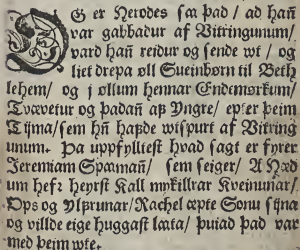 OG er Herodes sa þad / ad hañ
var gabbadur af Vitringunum /
vard hañ reidur og sende wt / og
liet drepa øll Sueinbørn til Beth
lehem / og j øllum hennar Endemørkum /
Tvævetur og þadañ aß Yngre / epter þeim
Tijma / sem hñ hafde wtspurt af Vitring
unum. Þa uppfylltest hvad sagt er fyrer
Jeremiam Spæmañ / sem seiger / A Hæd
um hefr heyrst Kall mykillrar Kveinunar /
Ops og Ylfrunar / Rachel æpte Sonu sijna
og villde eige huggast læta / þuiad þad var
med þeim wte.